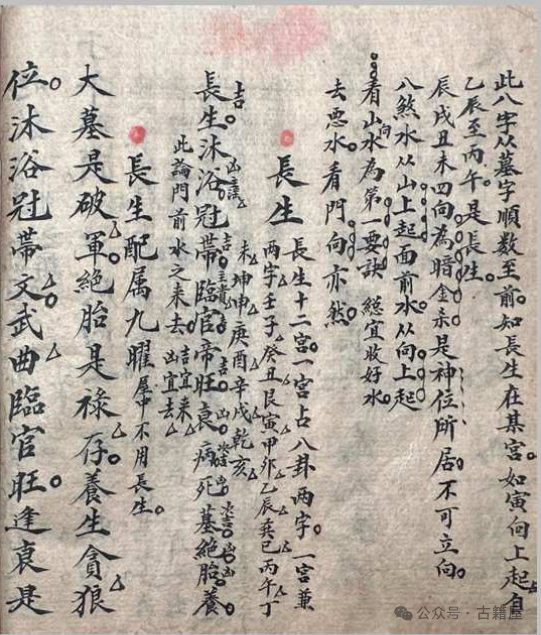 此八字从墓字順数至前。知長生在某宮。如寅向上起自
乙辰至丙午。是長生。
辰戌丑未四向為暗金杀是神位所居。不可立向。
八煞水从山上起面前水从向上起
看山向水為第一要訣 総宜收好水。
去悪水。看門向亦然。
長生 長生十二宮。一宮占八卦兩字。一宮兼
兩字壬子癸丑艮寅甲卯乙辰巽巳丙午丁
未坤申庚酉辛戌乾亥
長生。沐浴冠帶臨官帝旺衰病死墓絕胎養
此論門前水之来去 吉宜来 凶宜去
長生配属九曜 屋中不用長生。
大墓是破軍。絕胎是祿存。養生貪狼
位。沐浴冠帶文。武曲臨官旺。逢衰是
公众号·古籍屋